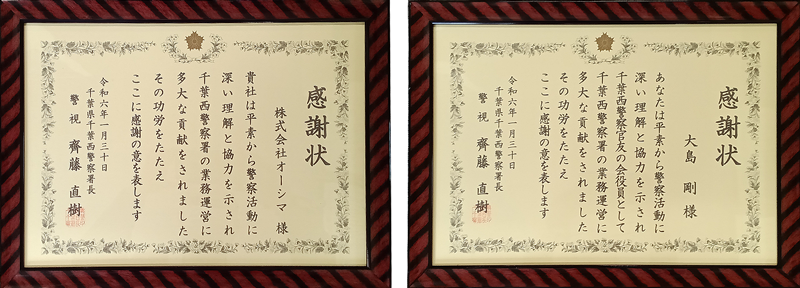 感謝状
株式会社オーシマ 様
貴社は平素から警察活動に
深い理解と協力を示され
千葉西警察署の業務運営に
多大な貢献をされました
その功労をたたえ
ここに感謝の意を表します
令和六年一月三十日
千葉県千葉西警察署長
警視 齊藤 直樹
感謝状
大島 剛 様
あなたは平素から警察活動に
深い理解と協力を示され
千葉西警察官友の会役員として
千葉西警察署の業務運営に
多大な貢献をされました
その功労をたたえ
ここに感謝の意を表します
令和六年一月三十日
千葉県千葉西警察署長
警視 齊藤 直樹